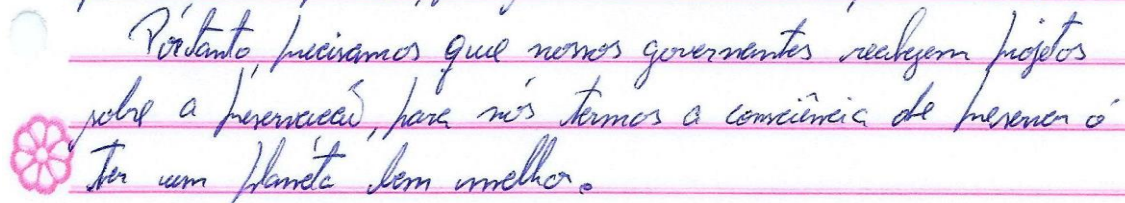 Portanto, precisamos que nossos governantes realizem projetos
sobre a preservação, para nós termos a consciência de preservar é
ter um planeta bem melhor.